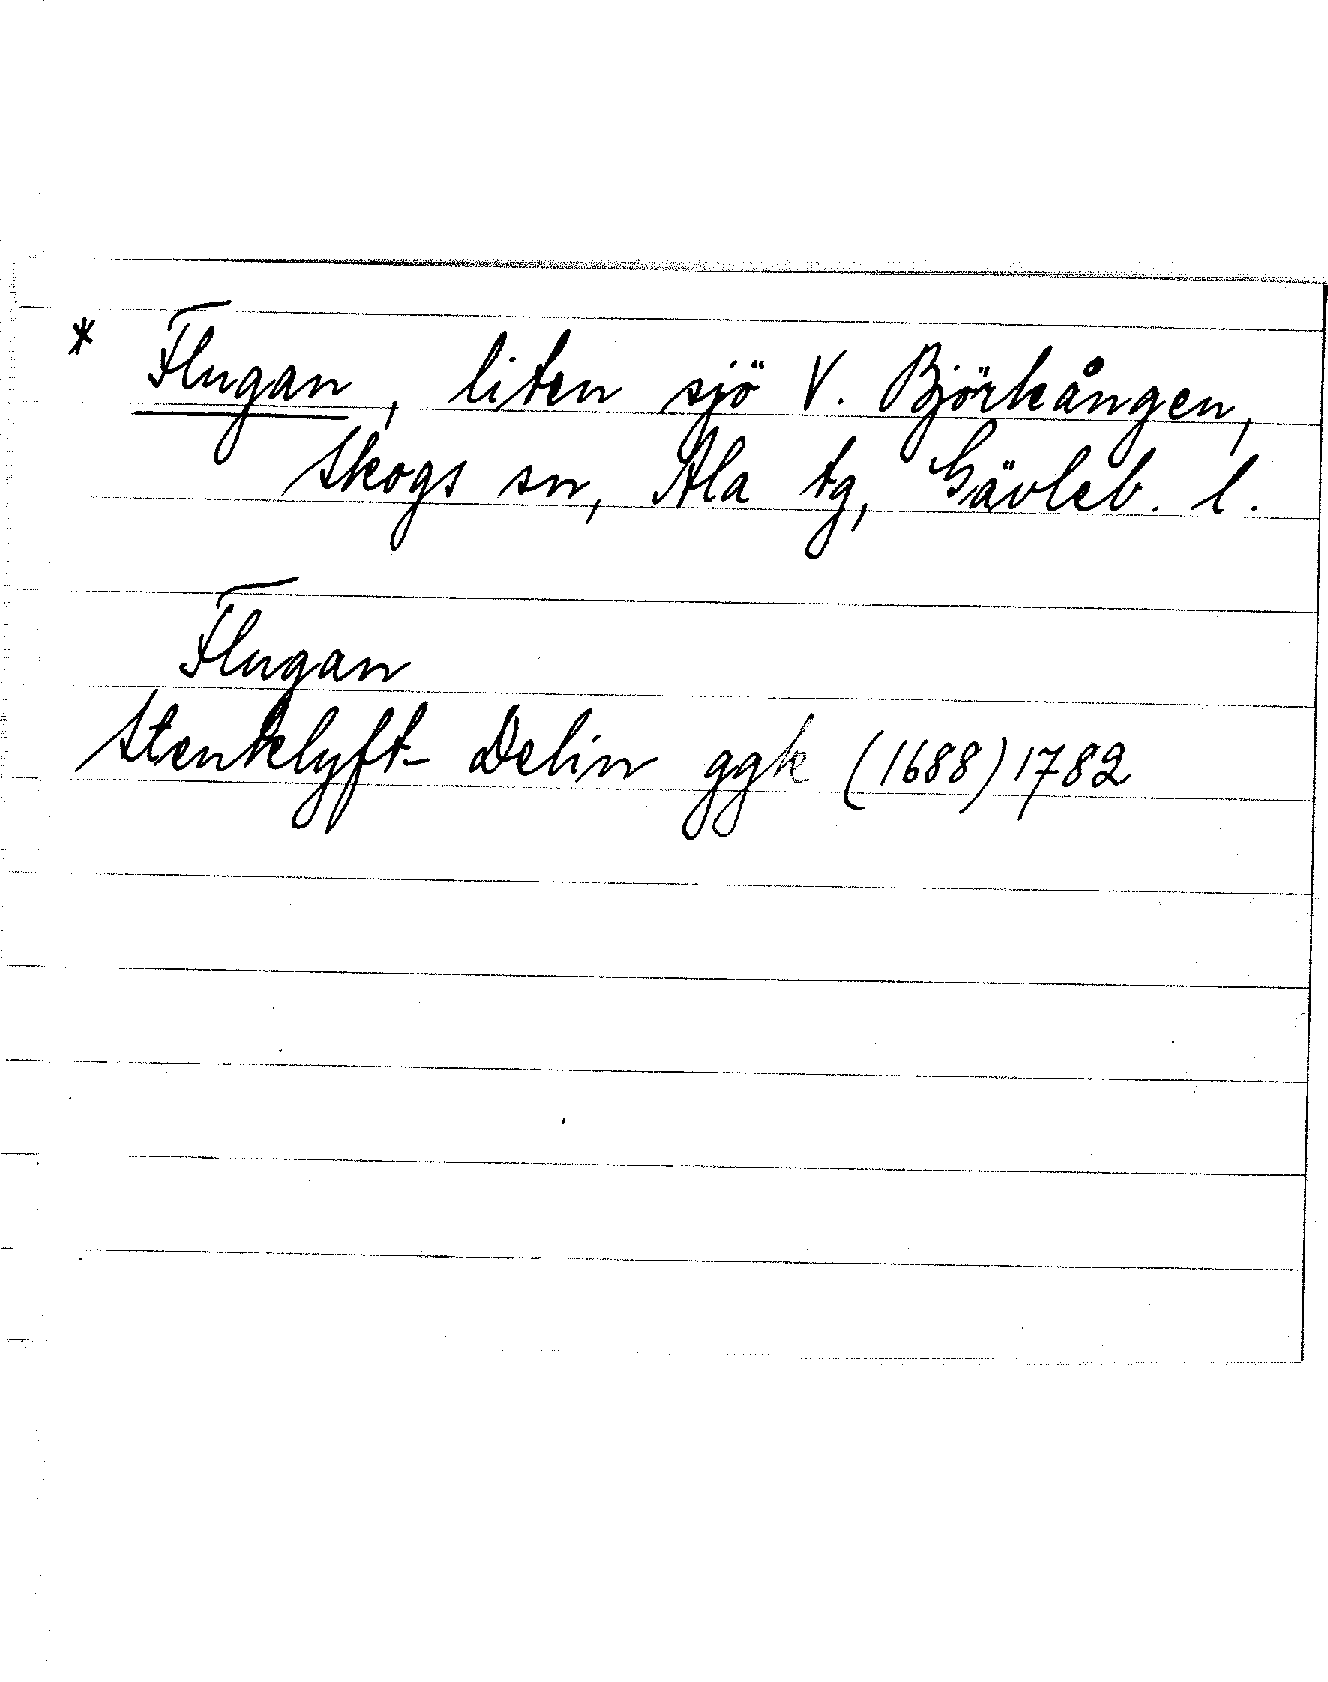 * Flugan, liten sjö V. Björkången,
Skogs sn, Ala tg, Gävleb. l.
Flugan
Stenklyft- Delin ggk (1688) 1782